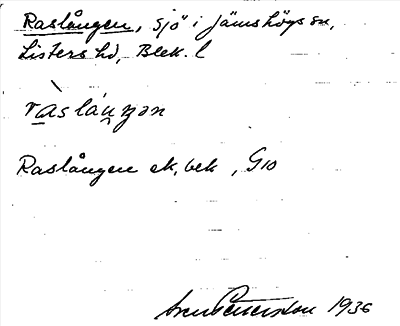 Raslången, sjö i Jämshögs sn,
Listers hd, Blek. l
ràslán̥ŋən
Raslången ek, bek, G10
1936